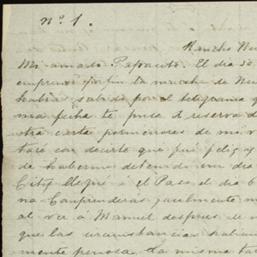 nº 1.
Rancho
Mi amado Papacito: El dia 30
emprendí por fin la marcha de
habia sabido por el telegrama
ma fecha te puse á reserva
otra carte pormenores de mi
taré con decirte que fué feliz y
de haberme detenido un dia
City llegué á el Paso el dia 6
na Comprenderas facilmente
al ver á Manuel despues de
que las circunstancias
mente penosa. La misma